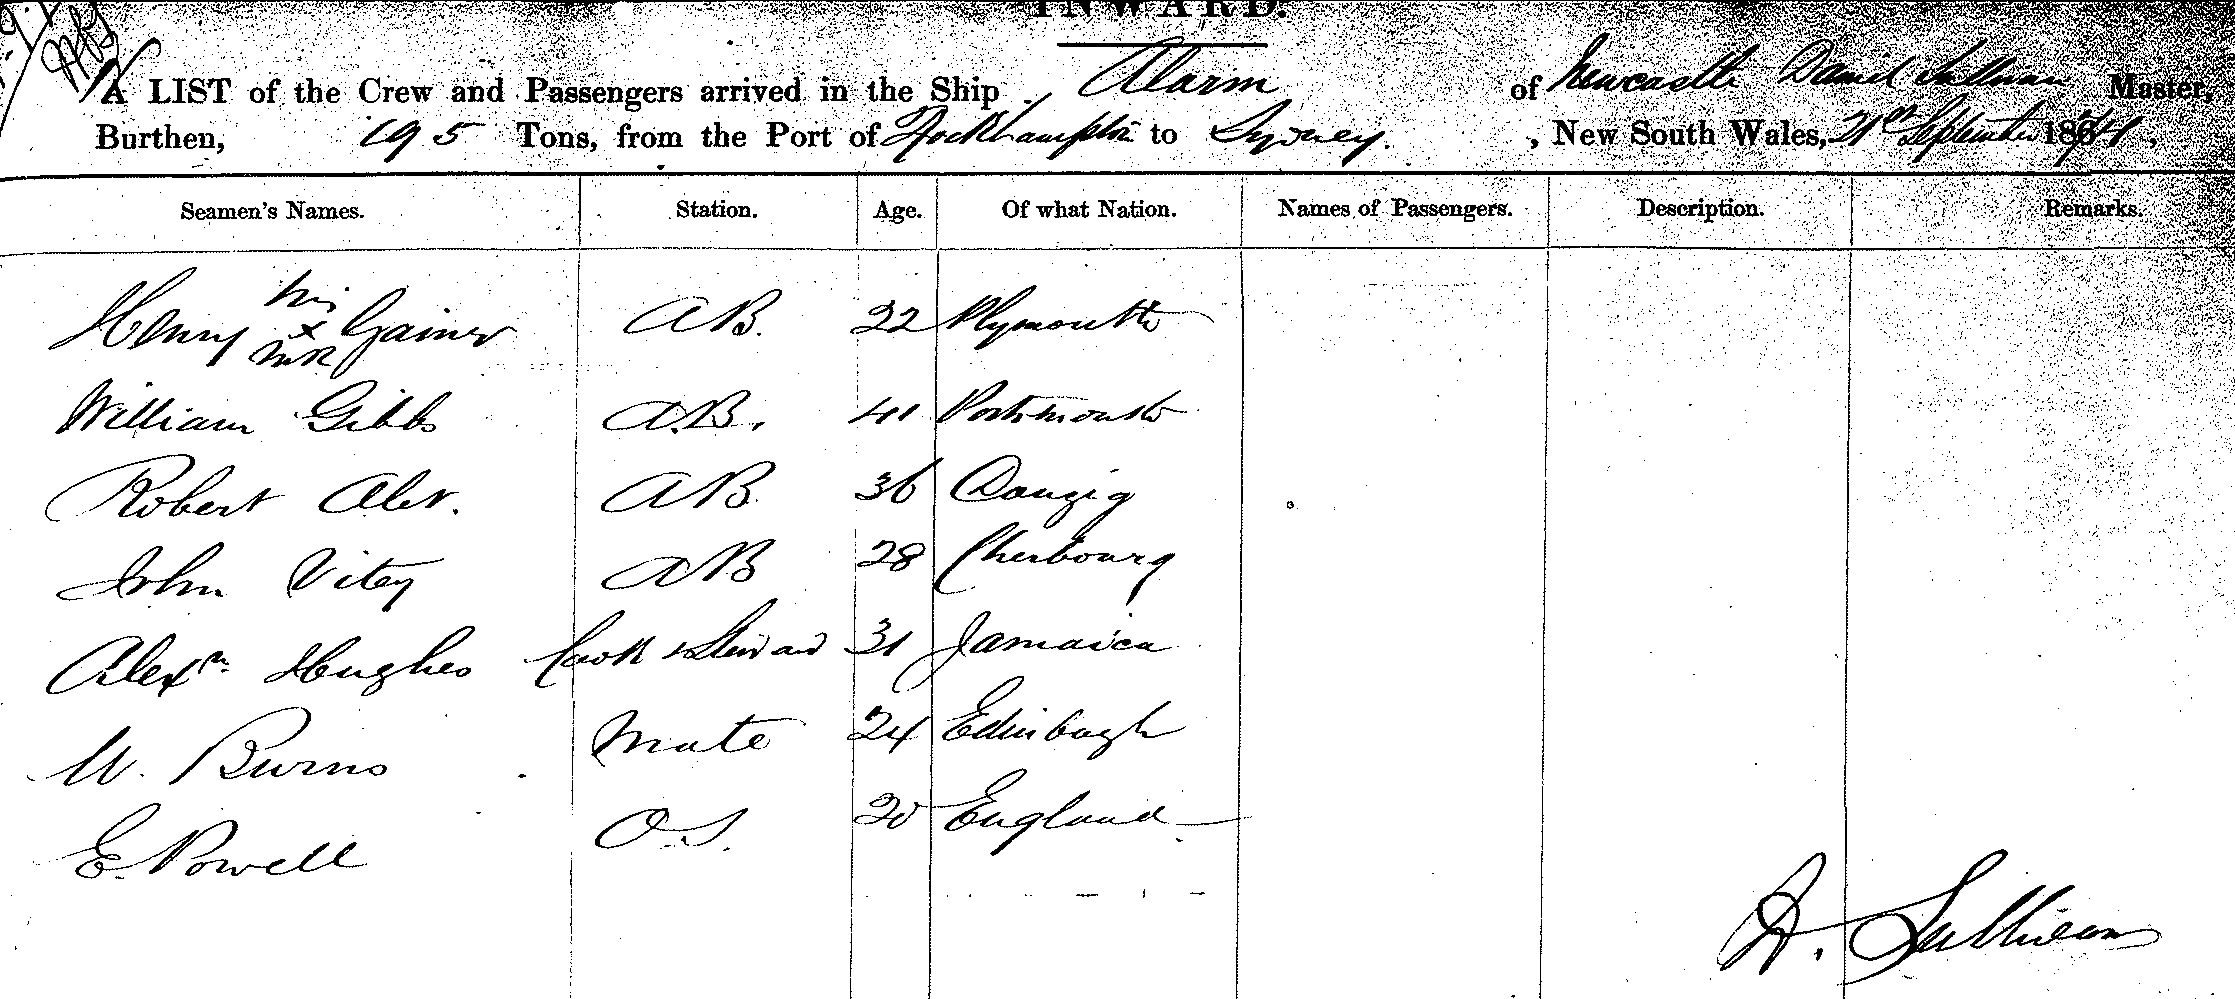 INWARD.
A LIST of the Crew and Passengers arrived in the Ship Alarm of Newcastle Daniel Sullivan Master,
Burthen, 195 Tons, from the Port of Rockhampton to Sydney. , New South Wales, 21st September 186
Seamen's Names. Station. Age. Of what Nation. Names of Passengers. Description. Remarks.
his
Henry x Gainer A B. 22 Plymouth
mk
William Gibbs A.B. 41 Portsmouth
Robert A B. 36 Danzig
John Vitey A B 28 Cherbourg
Alexr. Hughes Cook & Steward 31 Jamaica
W. Burns Mate 24 Edinburgh
E. Powell O.S. 20 England
D. Sullivan